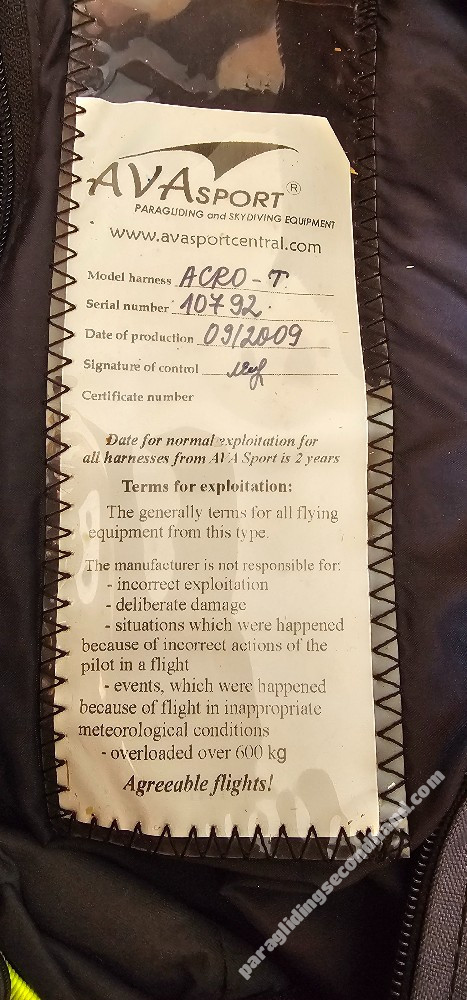 AVASPORT®
PARAGLIDING and SKYDIVING EQUIPMENT
www.avasportcentral.com
Model harness ACRO-T.
Serial number 10792.
Date of production 09/2009
Signature of control
Certificate number
Date for normal exploitation for
all harnesses from AVA Sport is 2 years
Terms for exploitation:
The generally terms for all flying
equipment from this type.
The manufacturer is not responsible for:
- incorrect exploitation
- deliberate damage
- situations which were happened
because of incorrect actions of the
pilot in a flight
- events, which were happened
because of flight in inappropriate
meteorological conditions
- overloaded over 600 kg
Agreeable flights!
paraglidingsecondhand.com